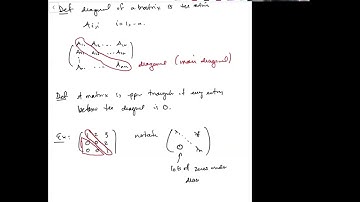 Def diagonal of a matrix is the entries
A_{i,i} i=1,...n.
A_{11} A_{12} ... A_{1n}
A_{21} A_{22} ... A_{2n}
A_{nn}
diagonal (main diagonal)
Def A matrix is upper triangular if every entry
below the diagonal is 0.
Ex: 1 2 3 notate λ_1 *
0 0 2
0 0 λ_n
0
lots of zeros under